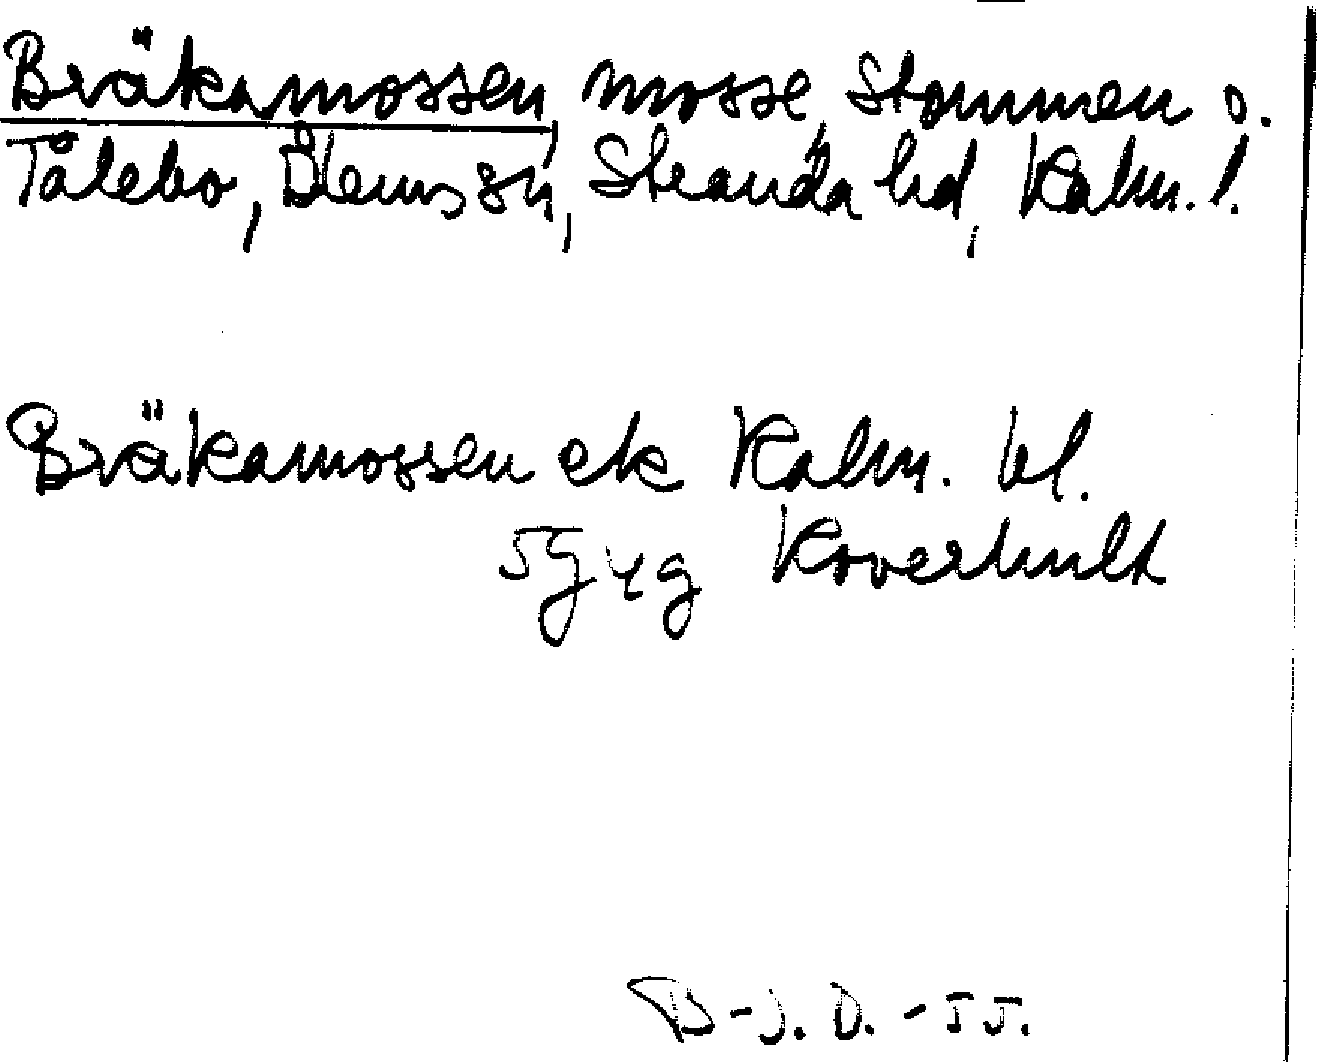 Bräkamossen, mosse, Stommen o.
Tålebo, Ålems sn, Stranda hd, Kalm. l.
Bräkamossen ek Kalm. bl.
5g4g Koverhult
B-J. D. -55.